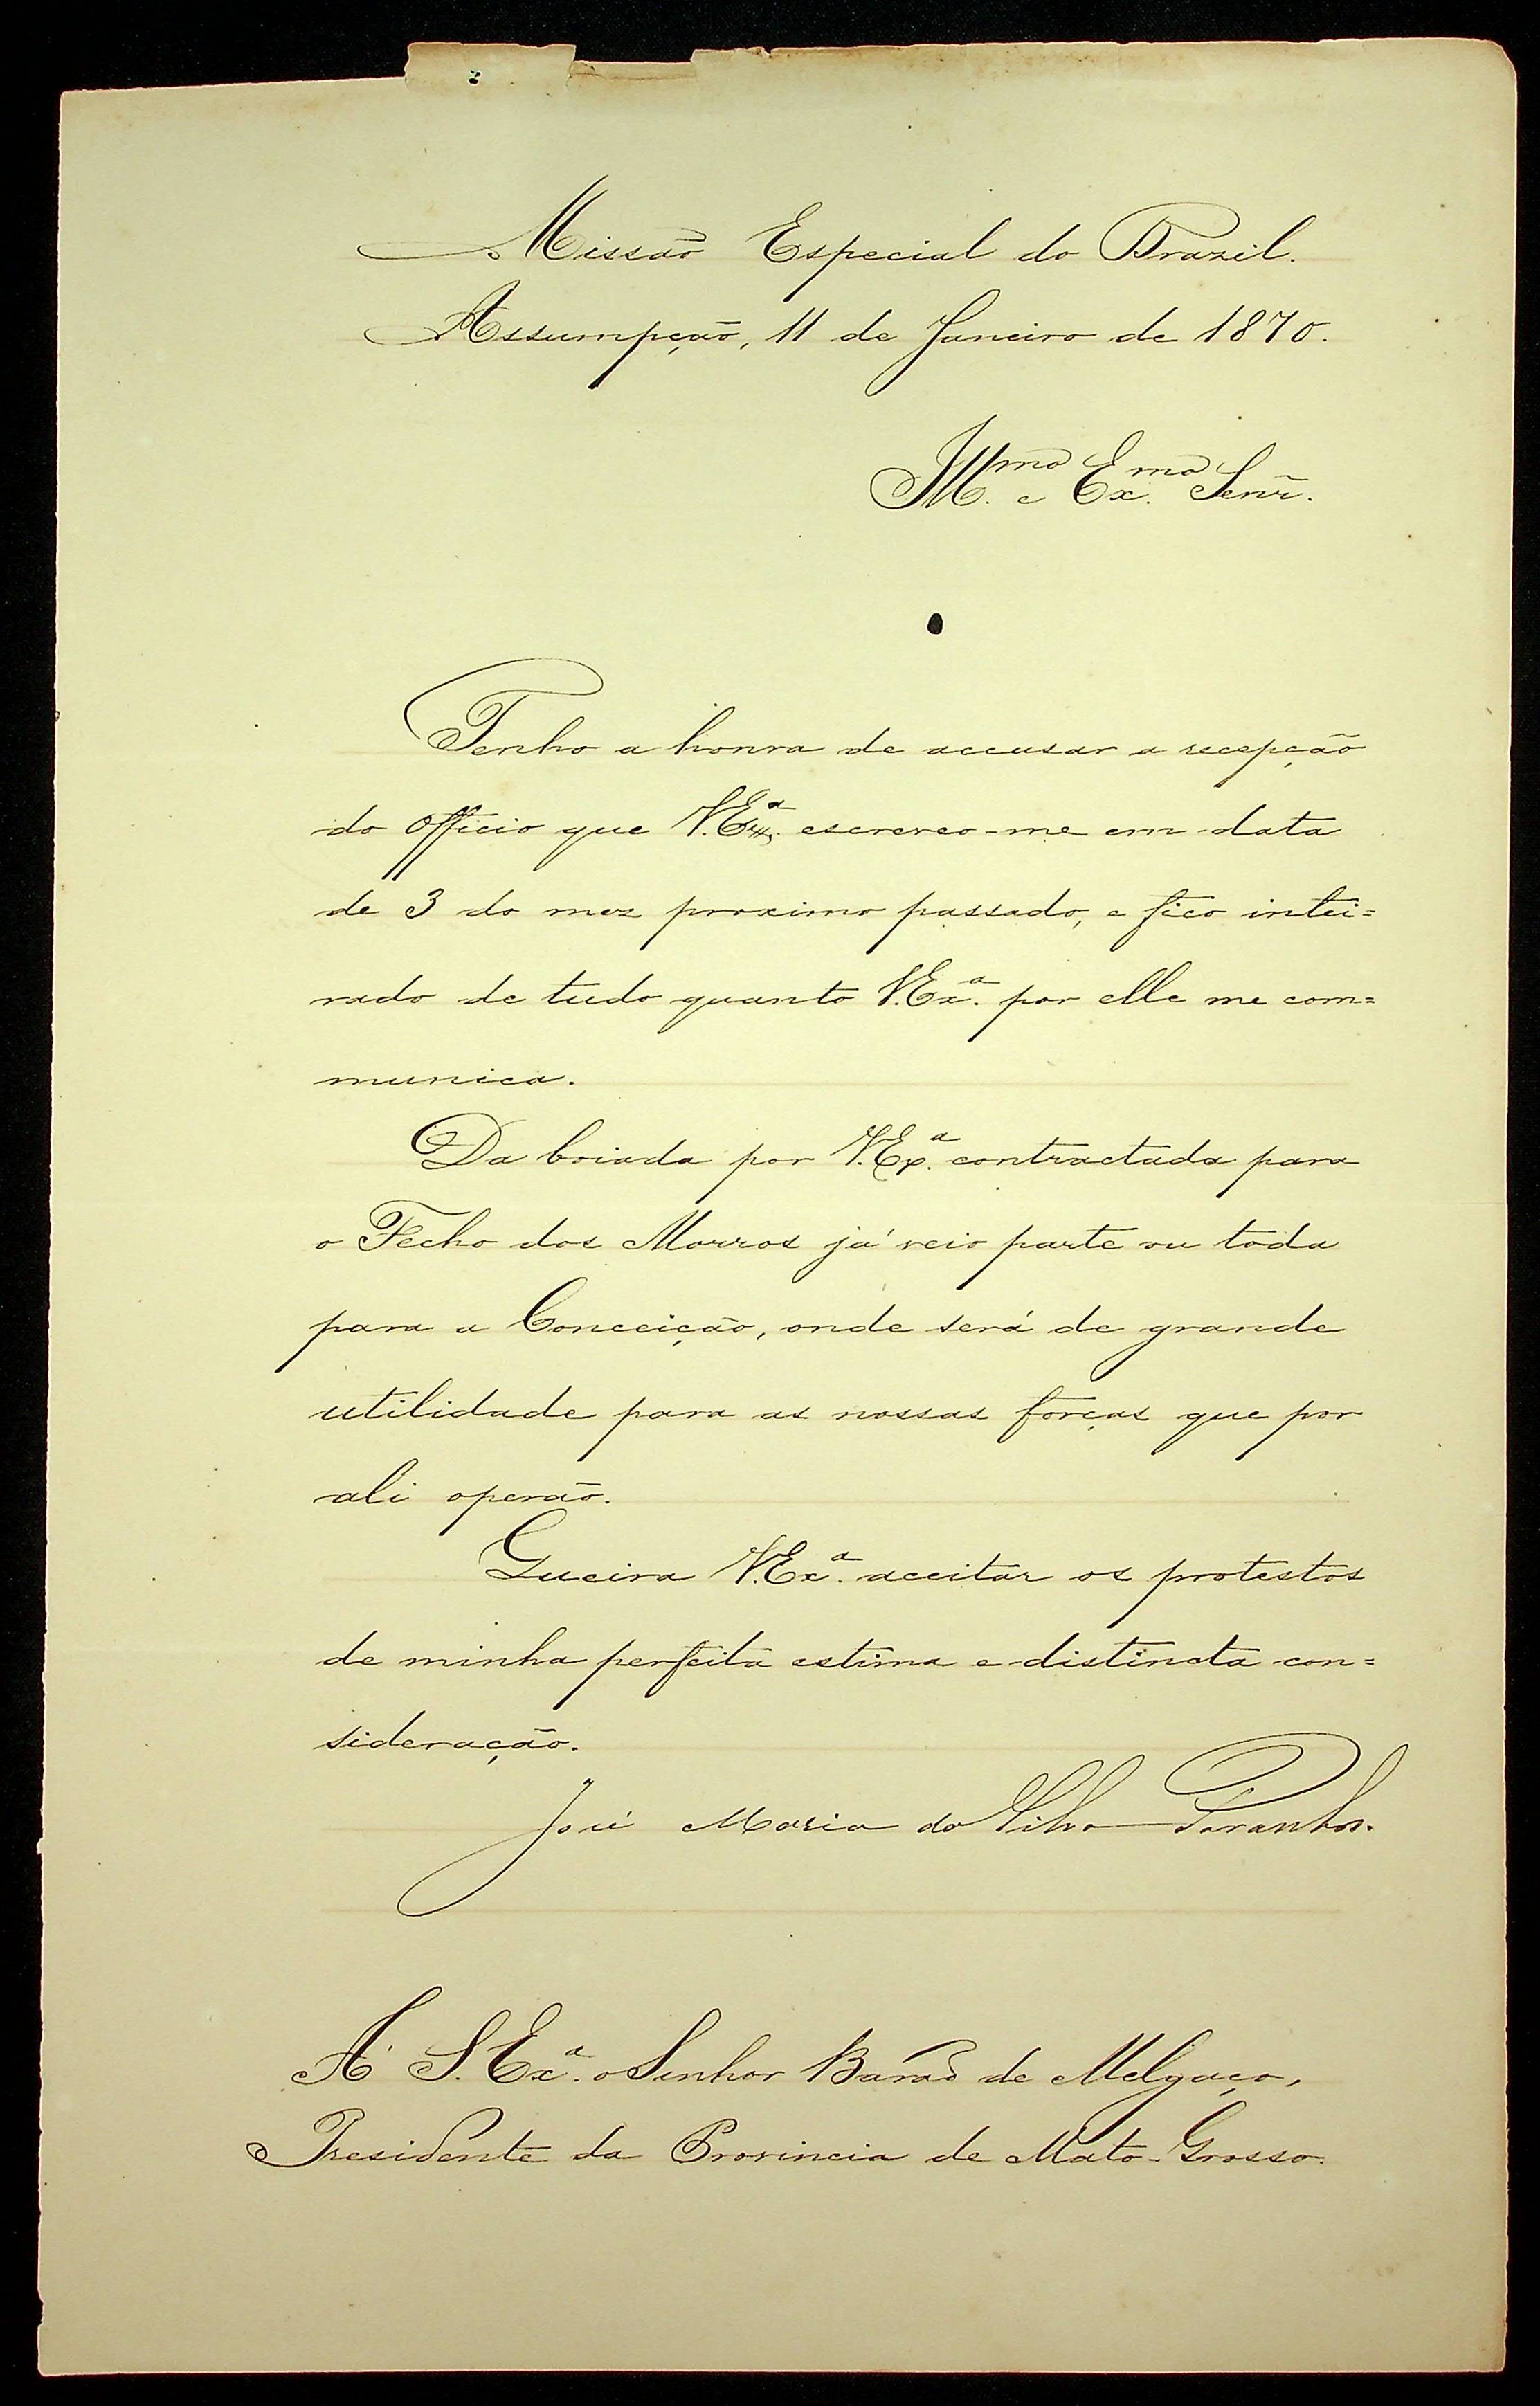 Missão Especial do Brazil.
Assumpção, 11 de Janeiro de 1870.
Ill.mo e Ex.mo Senr.
Tenho a honra de accusar a recepção
do officio que V.Exª. escreveo-me em data
de 3 do mez proximo passado, e fico intei=
rado de tudo quanto V.Exª. por elle me com=
munica.
Da boiada por V.Exª. contractada para
o Fecho dos Morros já veio parte ou toda
para a Conceição, onde será de grande
utilidade para as nossas forças que por
ali operão.
Queira V.Exª. aceitar os protestos
de minha perfeita estima e distincta con=
sideração.
José Maria da Silva Paranhos.
A' S. Exª. o Senhor Barão de Melgaço,
Presidente da Provincia de Mato-Grosso.